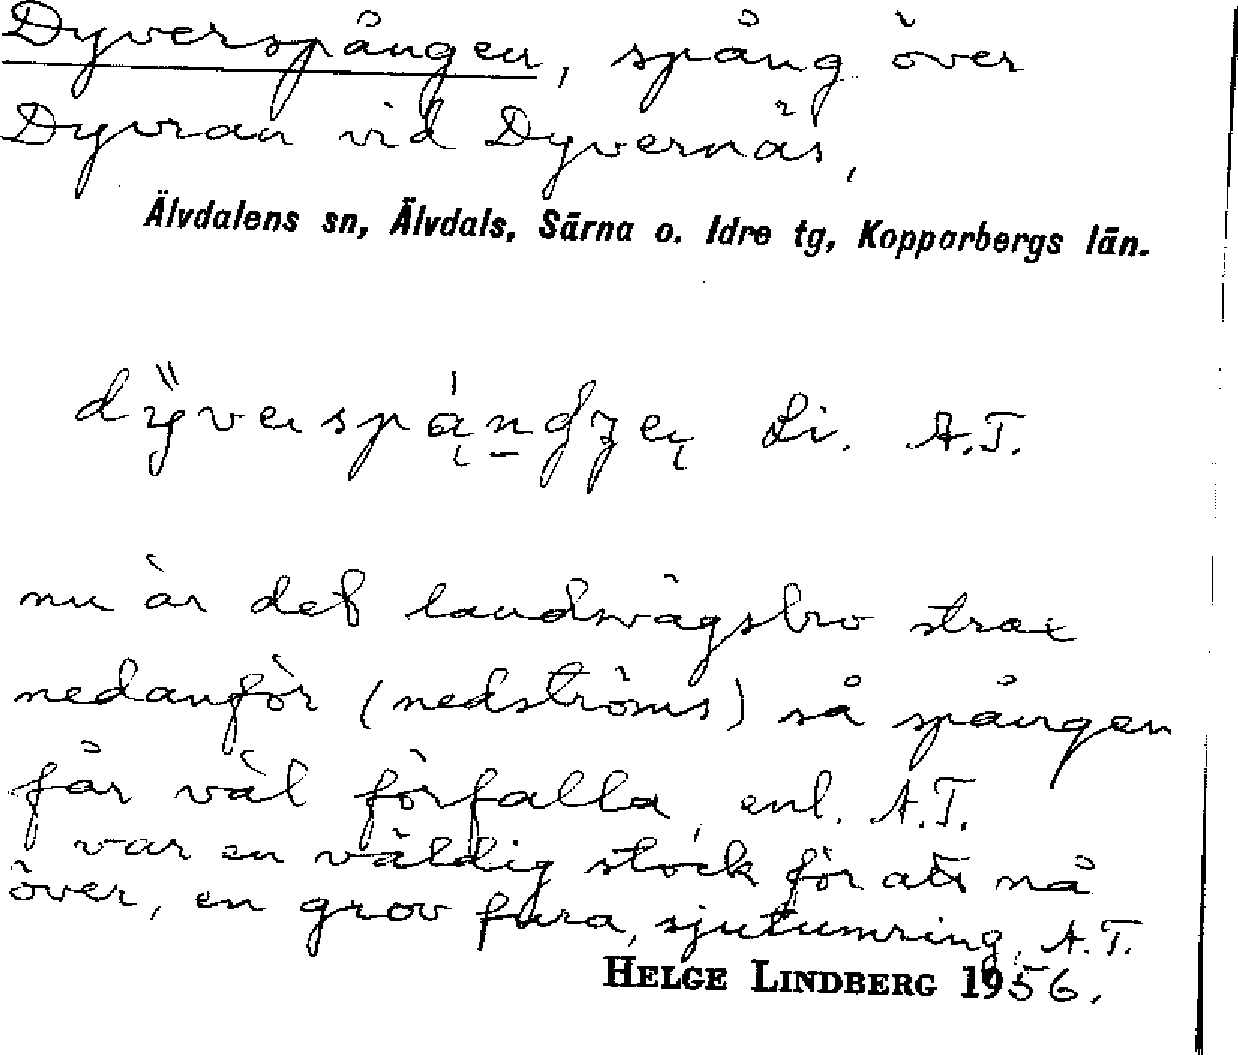 Dyverspången, spång över
Dyvran vid Dyvernäs,
Älvdalens sn, Älvdals, Särna o. Idre tg, Kopparbergs län.
Li. A.T.
nu är det landsvägsbro strax
nedanför (nedströms) så spången
får väl förfalla, enl. A.T.
var en väldig stock för att nå
över, en grov fura, sjutumring, A.T.
HELGE LINDBERG 1956.